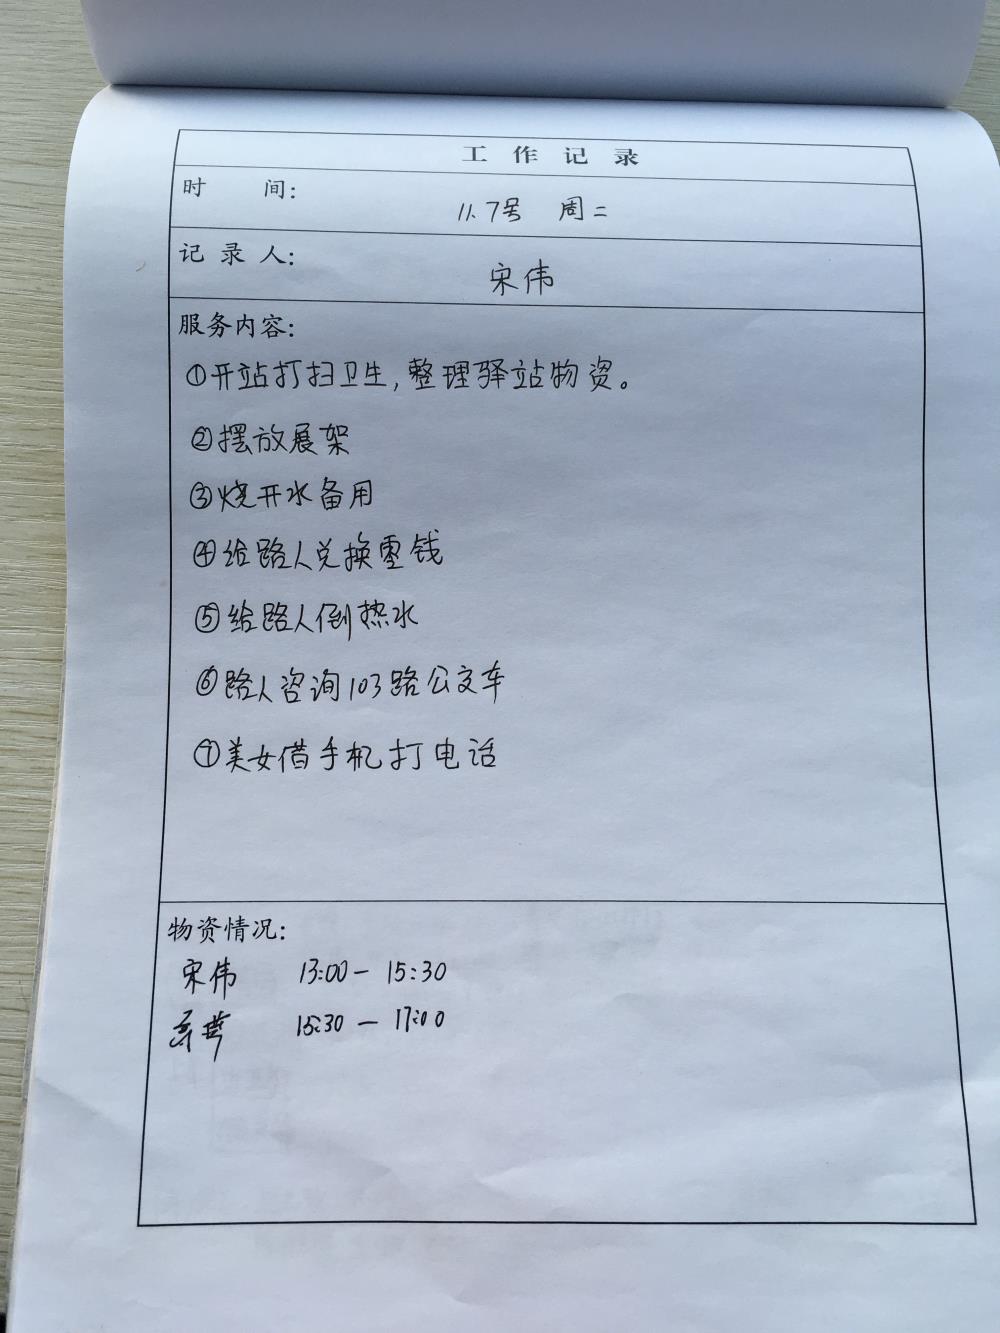 工作记录
时 间: 11.7号 周二
记录人: 宋伟
服务内容:
①开站打扫卫生,整理驿站物资。
②摆放展架
③烧开水备用
④给路人兑换零钱
⑤给路人倒热水
⑥路人咨询103路公交车
⑦美女借手机打电话
物资情况:
宋伟 13:00 - 15:30
15:30 - 17:00